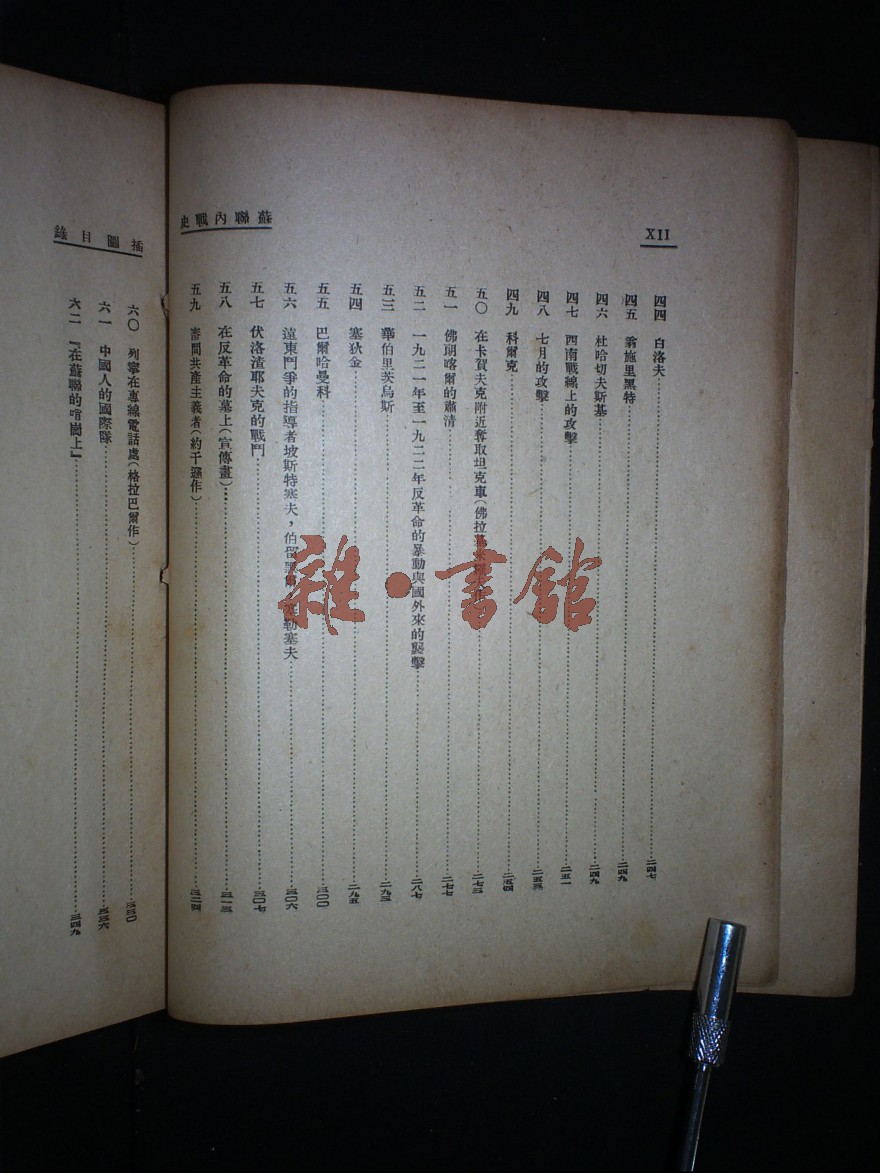 XII
蘇聯內戰史
四四 白洛夫……二四七
四五 翁施里黑特……二四九
四六 杜哈切夫斯基……二四九
四七 西南戰線上的攻擊……二五一
四八 七月的攻擊……二五三
四九 科爾克……二五四
五〇 在卡賀夫克附近奪取坦克車(佛拉……二七三
五一 佛朗喀爾的肅清……二七七
五二 一九二一年至一九二二年反革命的暴動與國外來的襲擊……二八七
五三 華伯里茨烏斯……二九三
五四 塞狄金……二九五
五五 巴爾哈曼科……三〇〇
五六 遠東鬥爭的指導者坡斯特塞夫,伯留黑爾,塞勒塞夫……三〇六
五七 伏洛渣耶夫克的戰鬥……三〇七
五八 在反革命的墓上(宣傳畫)……三一三
五九 審問共產主義者(約干遜作)……三二四
插圖目錄
六〇 列寧在專線電話處(格拉巴爾作)……三三〇
六一 中國人的國際隊……三三六
六二 『在蘇聯的哨崗上』……三四九
雜·書館